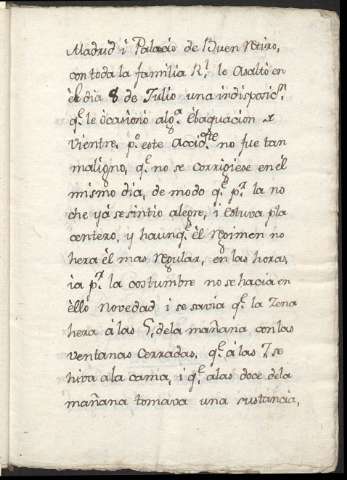 Madrid i Palacio de Buen Retiro,
con toda la familia Rl. le asaltò en
èl dia 8 de Julio una indisposicn.
qe. le ocasionò alga. Ebaquacion de
vientre, po. este Accidte. no fue tan
maligno, qe. no se corrigiese en èl
mismo dia, de modo qe. pr. la no
che yà se sintio alegre, i estuva pla
centero, y haunqe. èl Regimen no
hera èl mas Regular, en las horas,
ia pr. la costumbre no se hacia en
èllo novedad i se savia qe. la Zena
hera à las 5, dela mañana con las
ventanas Cerradas, qe. à las 7, se
hiva a la cama, i qe. alas doce dela
mañana tomava una sustancia,